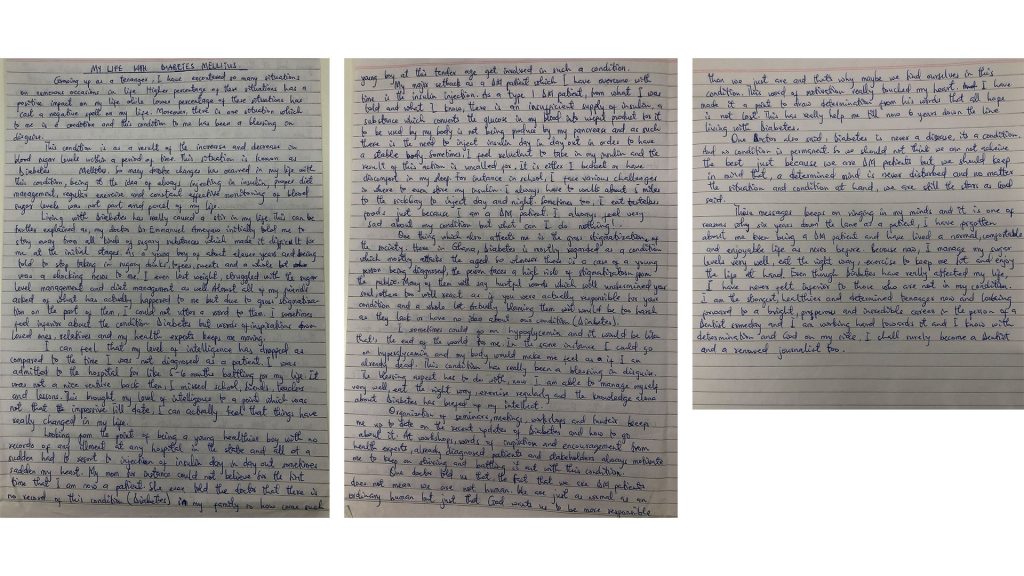 MY LIFE WITH DIABETES MELLITUS.
Growing up as a teenager, I have encountered so many situations
on numerous occasions in life. Higher percentage of these situations has a
positive impact on my life while lower percentage of these situations has
cast a negative spell on my life. Moreover there is one situation which
to me is a condition and this condition to me has been a blessing in
disguise.
This condition is as a result of the increase and decrease in
blood sugar levels within a period of time. This situation is known as
Diabetes Mellitus. So many drastic changes has occurred in my life with
this condition, being it the idea of always injecting in insulin, proper diet
management, regular exercise and constant effective monitoring of blood
sugar levels was not part and parcel of my life.
Living with Diabetes has really caused a stir in my life. This can be
further explained as, my doctor Dr Emmanuel Ameyaw initially told me to
stay away from all kinds of sugary substances which made it difficult for
me at the initial stages. As a young boy of about eleven years and being
told to stop taking in sugary drinks, types, sweets and a whole lot
was a shocking news to me. I even lost weight, struggled with the sugar
level management and diet management as well. Almost all of my friends
asked of what has actually happened to me but due to gross stigmatiza-
tion on the part of them, I could not utter a word to them. I sometimes
feel inferior about the condition Diabetes but words of inspirations from
loved ones, relatives and my health experts keeps me moving.
I can feel that my level of intelligence has dropped as
compared to the time I was not diagnosed as a patient. I was
admitted to the hospital for like 5-6 months battling for my life. It
was not a nice venture back then; I missed school, friends, teachers
and lessons. This brought my level of intelligence to a point which was
not that impressive till date, I can actually feel that things have
really changed in my life.
Looking from the point of being a young healthier boy with no
records of any ailment at any hospital in the state and all of a
sudden had to resort to injection of insulin day in day out sometimes
sadden my heart. My mom for instance could not believe for the first
time that I am now a patient. She even told the doctor that there is
no record of this condition (Diabetes) in my family so how come such
young boy at this tender age get involved in such a condition.
My major setback as a DM patient which I have overcome with
time is the insulin injection. As a type 1 DM patient, from what I was
told and what I know, there is an insufficient supply of insulin, a
substance which converts the glucose in my blood into useful product for it
to be used by my body is not being produce by my pancreas and as such
there is the need to inject insulin day in day out in order to have
a stable body. Sometimes I feel reluctant to take in my insulin and the
result of this action is uncalled for, it is either I urinate or have
discomfort in my sleep. For instance in school, I face various challenges
is where to even store my insulin. I always have to walk about miles
to the sickbay to inject day and night. Sometimes too, I eat tasteless
foods just because I am a DM patient. I always feel very
sad about my condition but what can I do nothing!..
One thing which also affects me is the gross stigmatization of
the society. Here in Ghana, Diabetes is mostly regarded as a condition
which mostly attacks the aged so whenever there is a case of a young
person being diagnosed, the person faces a high risk of stigmatization from
the public. Many of them will say hurtful words which will undermined your
soul, others too will react as if you were actually responsible for your
condition and a whole lot. Actually blaming them would be too harsh
as they lack or have no idea about our condition (Diabetes).
I sometimes could go on hypoglycemia and it would be like
that's the end of the world for me. In the same instance I could go
on hyperglycemia and my body would make me feel as if I am
already dead. This condition has really been a blessing in disguise.
The blessing aspect has to do with, now I am able to manage myself
very well, eat the right way, exercise regularly and the knowledge alone
about Diabetes has beefed up my intellect.
Organization of seminars, meetings, workshops and funfair keeps
me up to date on the recent updates of Diabetes and how to go
about it. At workshops, words of inspiration and encouragement from
health experts, already diagnosed patients and stakeholders always motivate
me to keep on striving and battling it out with this condition.
One doctor told us that the fact that we are DM patients
does not mean we are not human. We are just as normal as an
ordinary human but just that God wants us to be more responsible
than we just are and that's why maybe we find ourselves in this
condition. This word of motivation really touched my heart and I have
made it a point to draw determination from his words that all hope
is not lost. This has really help me till now 6 years down the line
living with Diabetes.
One doctor also said, Diabetes is never a disease, its a condition.
And no condition is permanent. So we should not think we can not achieve
the best just because we are DM patients but we should keep
in mind that, a determined mind is never disturbed and no matter
the situation and condition at hand, we are still the stars as God
said.
These messages keeps on ringing in my minds and it is one of
reasons why six years down the lane as a patient, I have forgotten
about me even being a DM patient and have lived a normal, comfortable
and enjoyable life as never before. Because now, I manage my sugar
levels very well, eat the right way, exercise to keep me fit and enjoy
the life at hand. Even though Diabetes have really affected my life,
I have never felt inferior to those who are not in my condition.
I am the strongest, healthier and determined teenager now and looking
forward to a bright, prosperous and incredible career in the person of a
Dentist someday and I am working hard towards it and I know with
determination and God on my side, I shall surely become a Dentist
and a renowned journalist too.